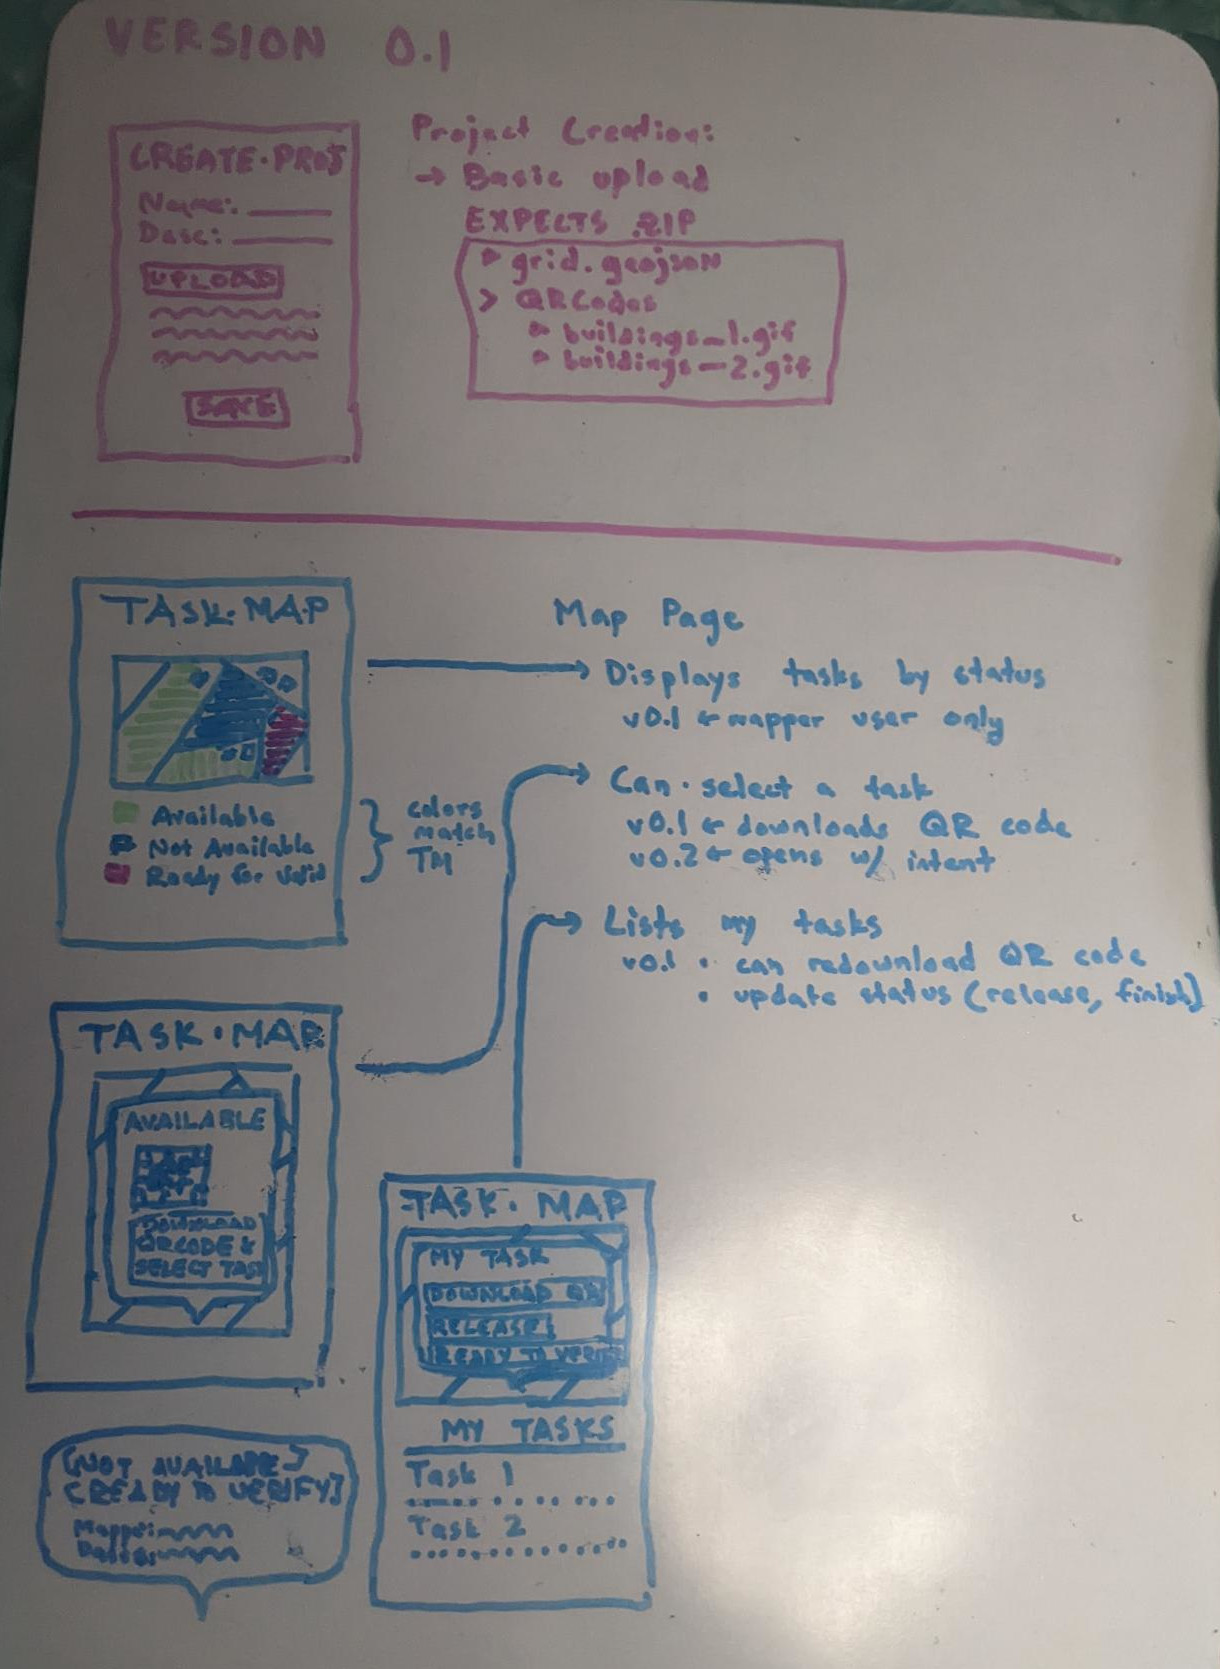 VERSION 0.1
CREATE·PROJ
Name:
Desc:
UPLOAD
SAVE
Project Creation:
→ Basic upload
EXPECTS .ZIP
grid.geojson
> QRCodes
buildings_1.gif
buildings_2.gif
TASK·MAP
Available
Not Available
Ready for Valid
colors
match
TM
Map Page
→ Displays tasks by status
v0.1 ← mapper user only
→ Can · select a task
v0.1 ← downloads QR code
v0.2 ← opens w/ intent
→ Lists my tasks
v0.1 • can redownload QR code
• update status (release, finish)
TASK·MAP
AVAILABLE
DOWNLOAD
QRCODE &
SELECT TASK
TASK·MAP
MY TASK
DOWNLOAD QR
RELEASE
READY TO VERIFY
MY TASKS
Task 1
Task 2
[NOT AVAILABLE]
[READY TO VERIFY]
Mapper: